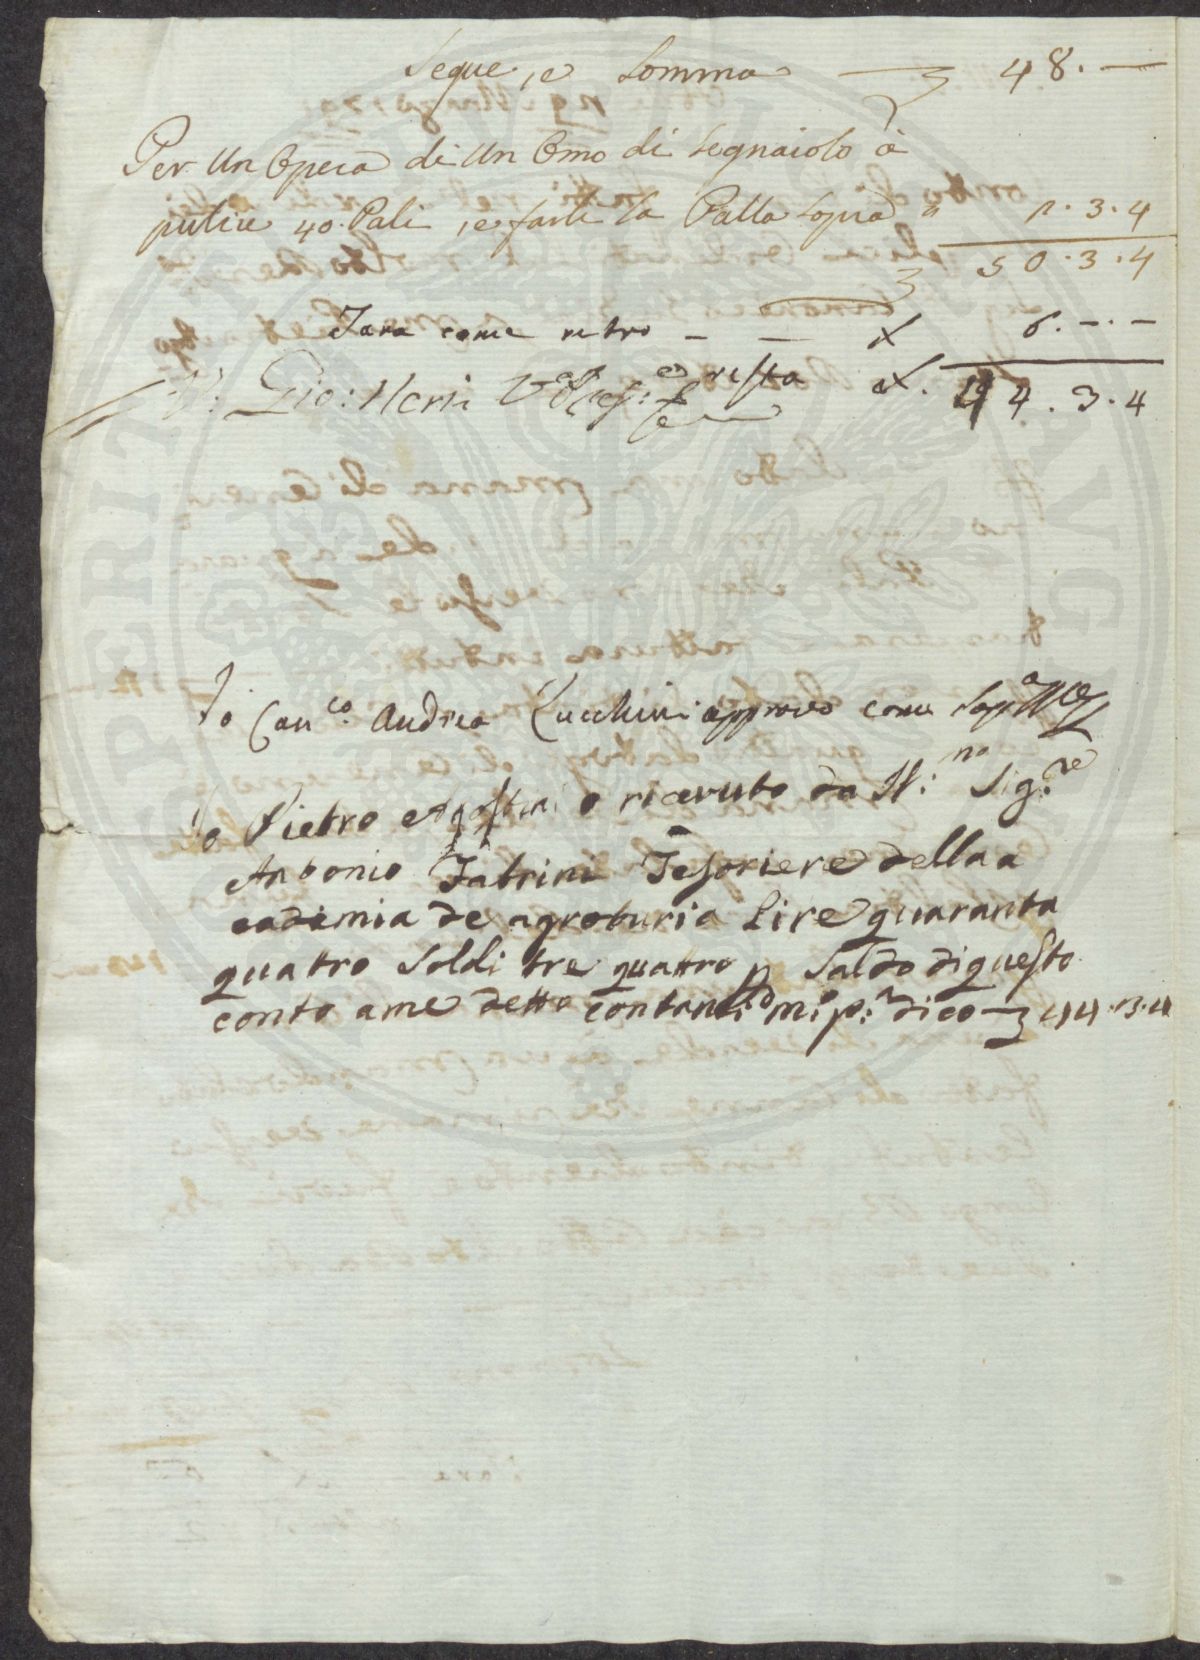 Segue, e Somma 48. —
Per Un Opera di Un Omo di Legnaiolo à
pulire 40. Pali, e farli la Palla Sopra " 2. 3. 4
50. 3. 4
Tara come retro - - 6. - . -
Gio: Neri resta 44. 3. 4
Io Can.co Andrea Zucchini approvo come Sop.a
Io Pietro Agostini o ricevuto da Il: mo Sig:re
Antonio Fabrini Tesoriere della a
cademia de agroturia Lire quaranta
quatro Soldi tre quattro p Saldo di questo
conto a me detto contanti m:o p:a dico 44. 3. 4